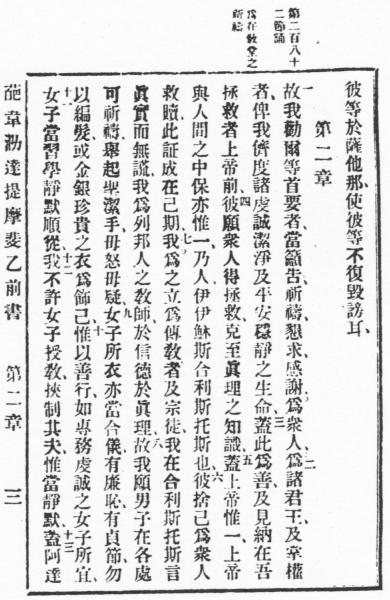 第二百八十
二節誦
爲在敎堂之
祈禱
彼等於薩他那、使彼等不復毀謗耳、
第二章
一故我勸爾等首要者、當籲告祈禱懇求感謝、爲衆人、二爲諸君王、及掌權
者、俾我儕度諸虔誠潔淨及平安穩靜之生命、三蓋此爲善及見納在吾
拯救者上帝前、四彼願衆人得拯救、克至眞理之知識、五蓋上帝惟一、上帝
與人間之中保亦惟一、乃人伊伊穌斯合利斯托斯也、六彼捨己爲衆人
救贖、此証成在己期、七我爲之立爲傳敎者及宗徒、我在合利斯托斯言
眞實而無謊、我爲列邦人之敎師、於信德、於眞理、八故我願男子在各處
可祈禱、舉起聖潔手、毋怒毋疑、九女子所衣亦當合儀、有廉恥、有貞節、勿
以編髮或金銀珍貴之衣爲飾己、十惟以善行、如專務虔誠之女子所宜、
十一女子當習學靜默順從、十二我不許女子授敎、挾制其夫、惟當靜默、十三蓋阿達
葩韋泐達提摩斐乙前書 第二章 三